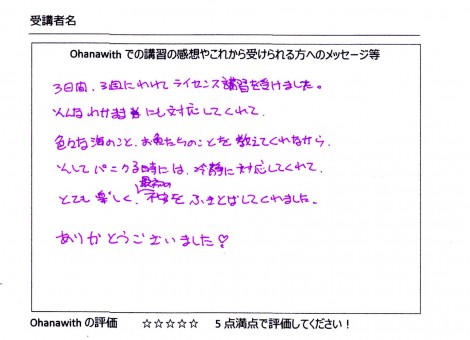 受講者名
Ohanawith での講習の感想やこれから受けられる方へのメッセージ等
3日間、3回にわけてライセンス講習を受けました。
そんなわがままにも対応してくれて、
色々な海のこと、お魚たちのことを教えてくれながら、
そしてパニクる時には、冷静に対応してくれて、
とても楽しく、最初の不安をふきとばしてくれました。
ありがとうございました♡
Ohanawith の評価 ☆☆☆☆☆ 5 点満点で評価してください！